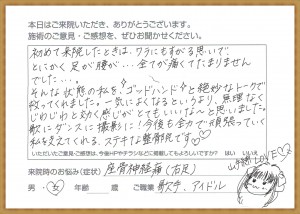 本日はご来院いただき、ありがとうございます。
施術のご意見・ご感想を、ぜひお聞かせください。
初めて来院したときは、ワラにもすがる思いで
とにかく足が腰が…全てが痛くてたまりません
でした…。
そんな状態の私を、ゴッドハンドと絶妙なトークで
救ってくれました。一気によくなるというより、無理なく
じわじわと効く感じがとてもいいなーと思いました。
歌にダンスに撮影に!今後も全力で頑張っていく
私を支えてくれる、ステキな整骨院です。
いただいたご意見・ご感想は、今後HPやチラシなどに掲載してもよろしいですか? いいえ
来院時のお悩み(症状) 座骨神経痛(右足)
男・女 年齢 歳 ご職業 歌手、アイドル
LOVE